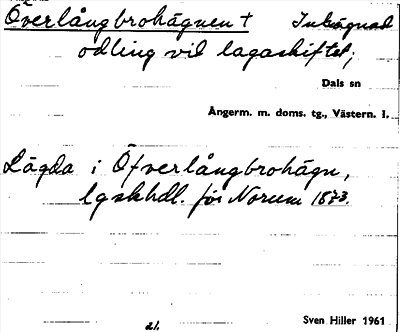 Överlångbrohägnen † Inhägnad
odling vid lagaskiftet;
Dals sn
Ångerm. m. doms. tg., Västern. l.
Lägda i Öfverlångbrohägn,
lgskhdl. för Norum 1873.
21.
Sven Hiller 1961